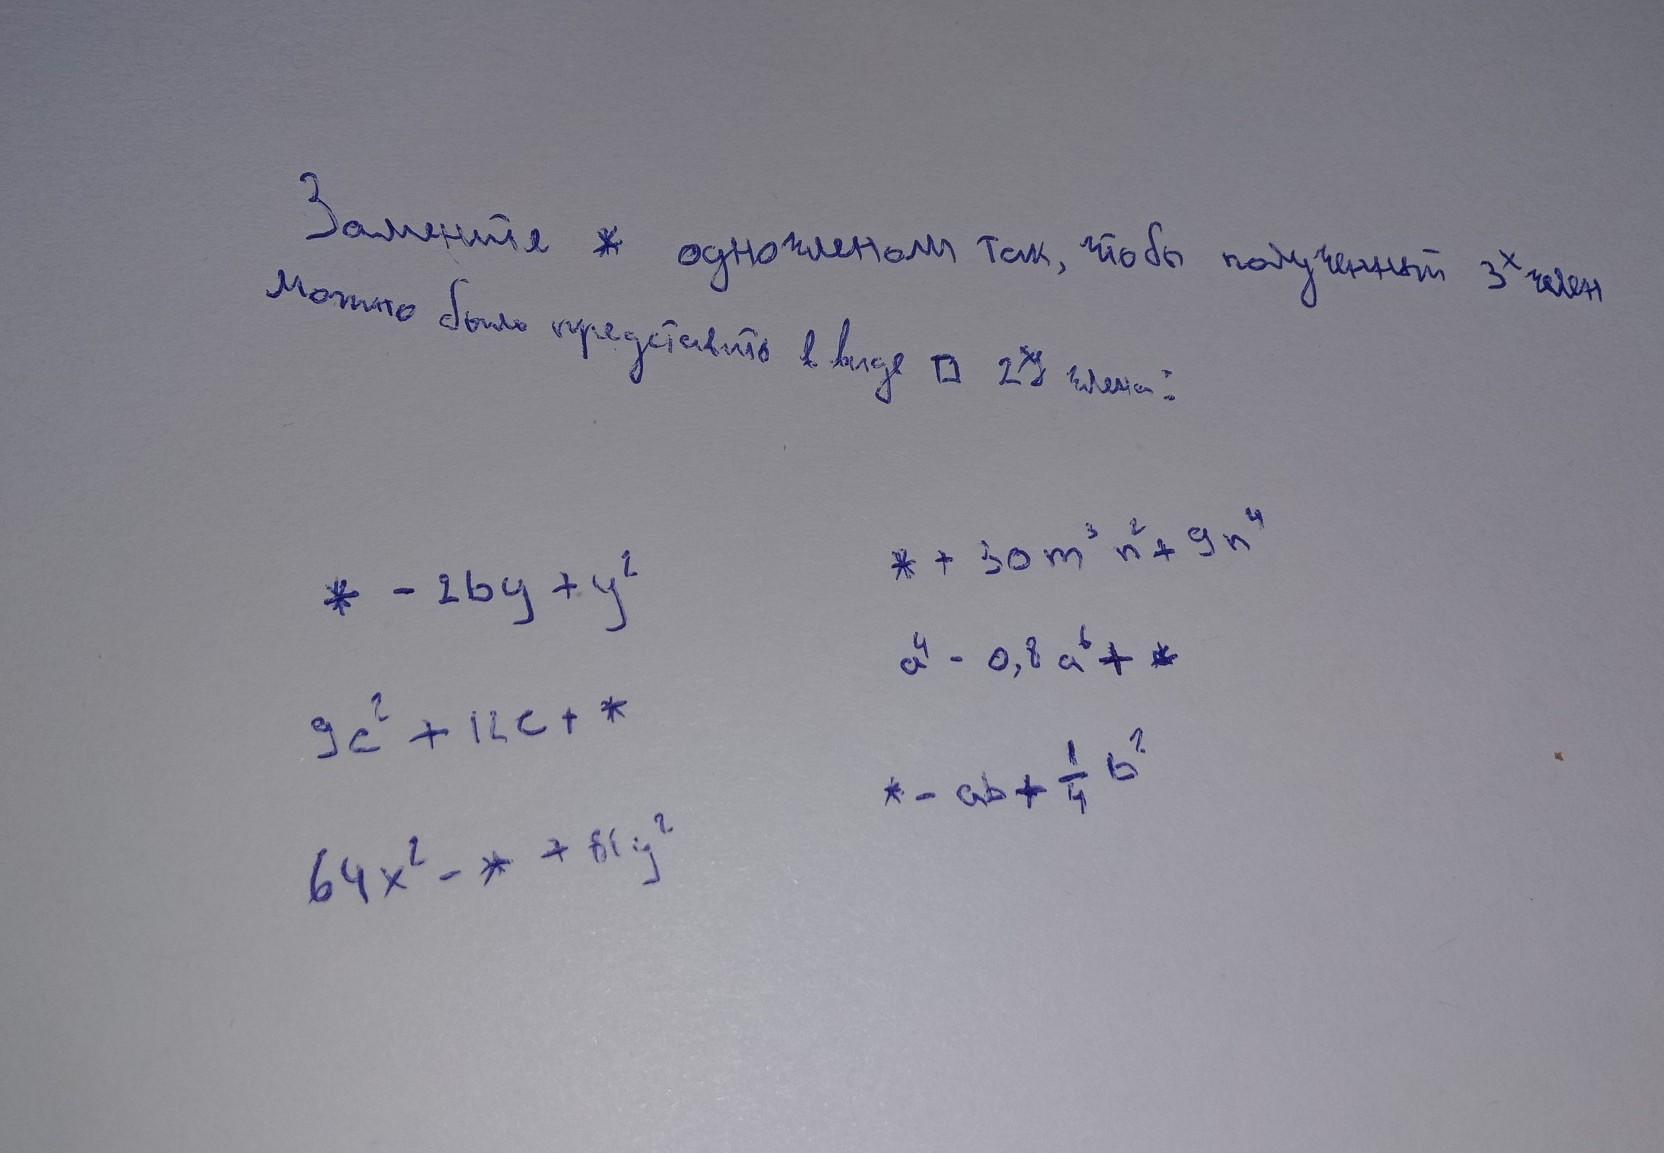 Замените * одночленом так, чтобы полученный 3ˣчлен
можно было представить в виде □ 2ˣ члена:
* - 2by + y²
9c² + 12c + *
64x² - * + 81y²
* + 30m³n² + 9n⁴
a⁴ - 0,8a⁶ + *
* - ab + 1/4 b²